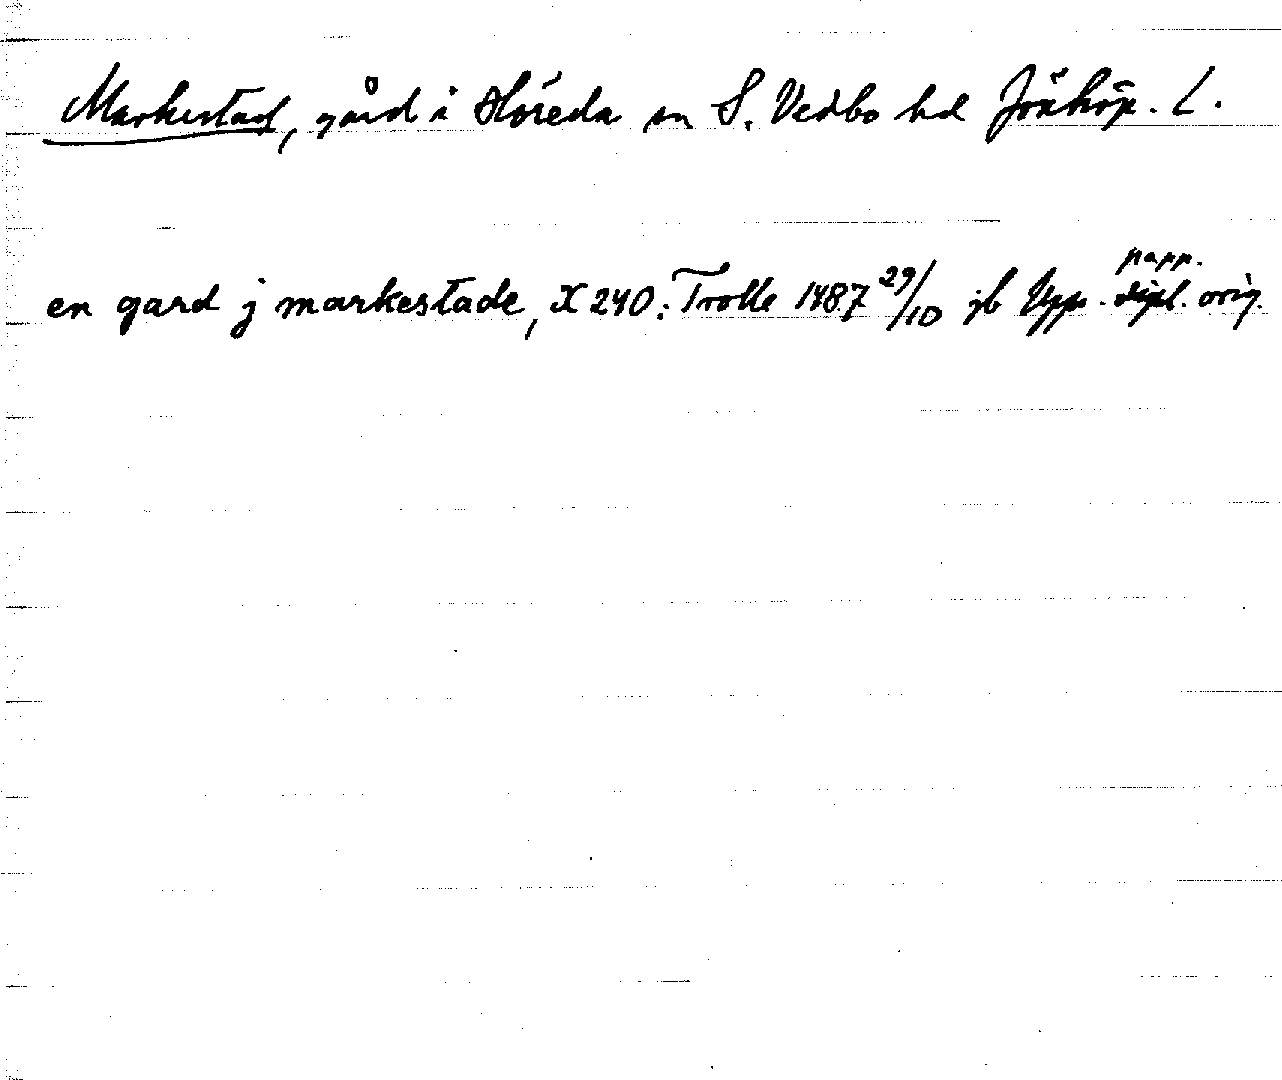 Markestad, gård i Höreda sn S. Vedbo hd Jönköp. L.
papp.
en gard j markestade, X 240: Trolle 1487 29/10 jb Upps. dipl. orig.